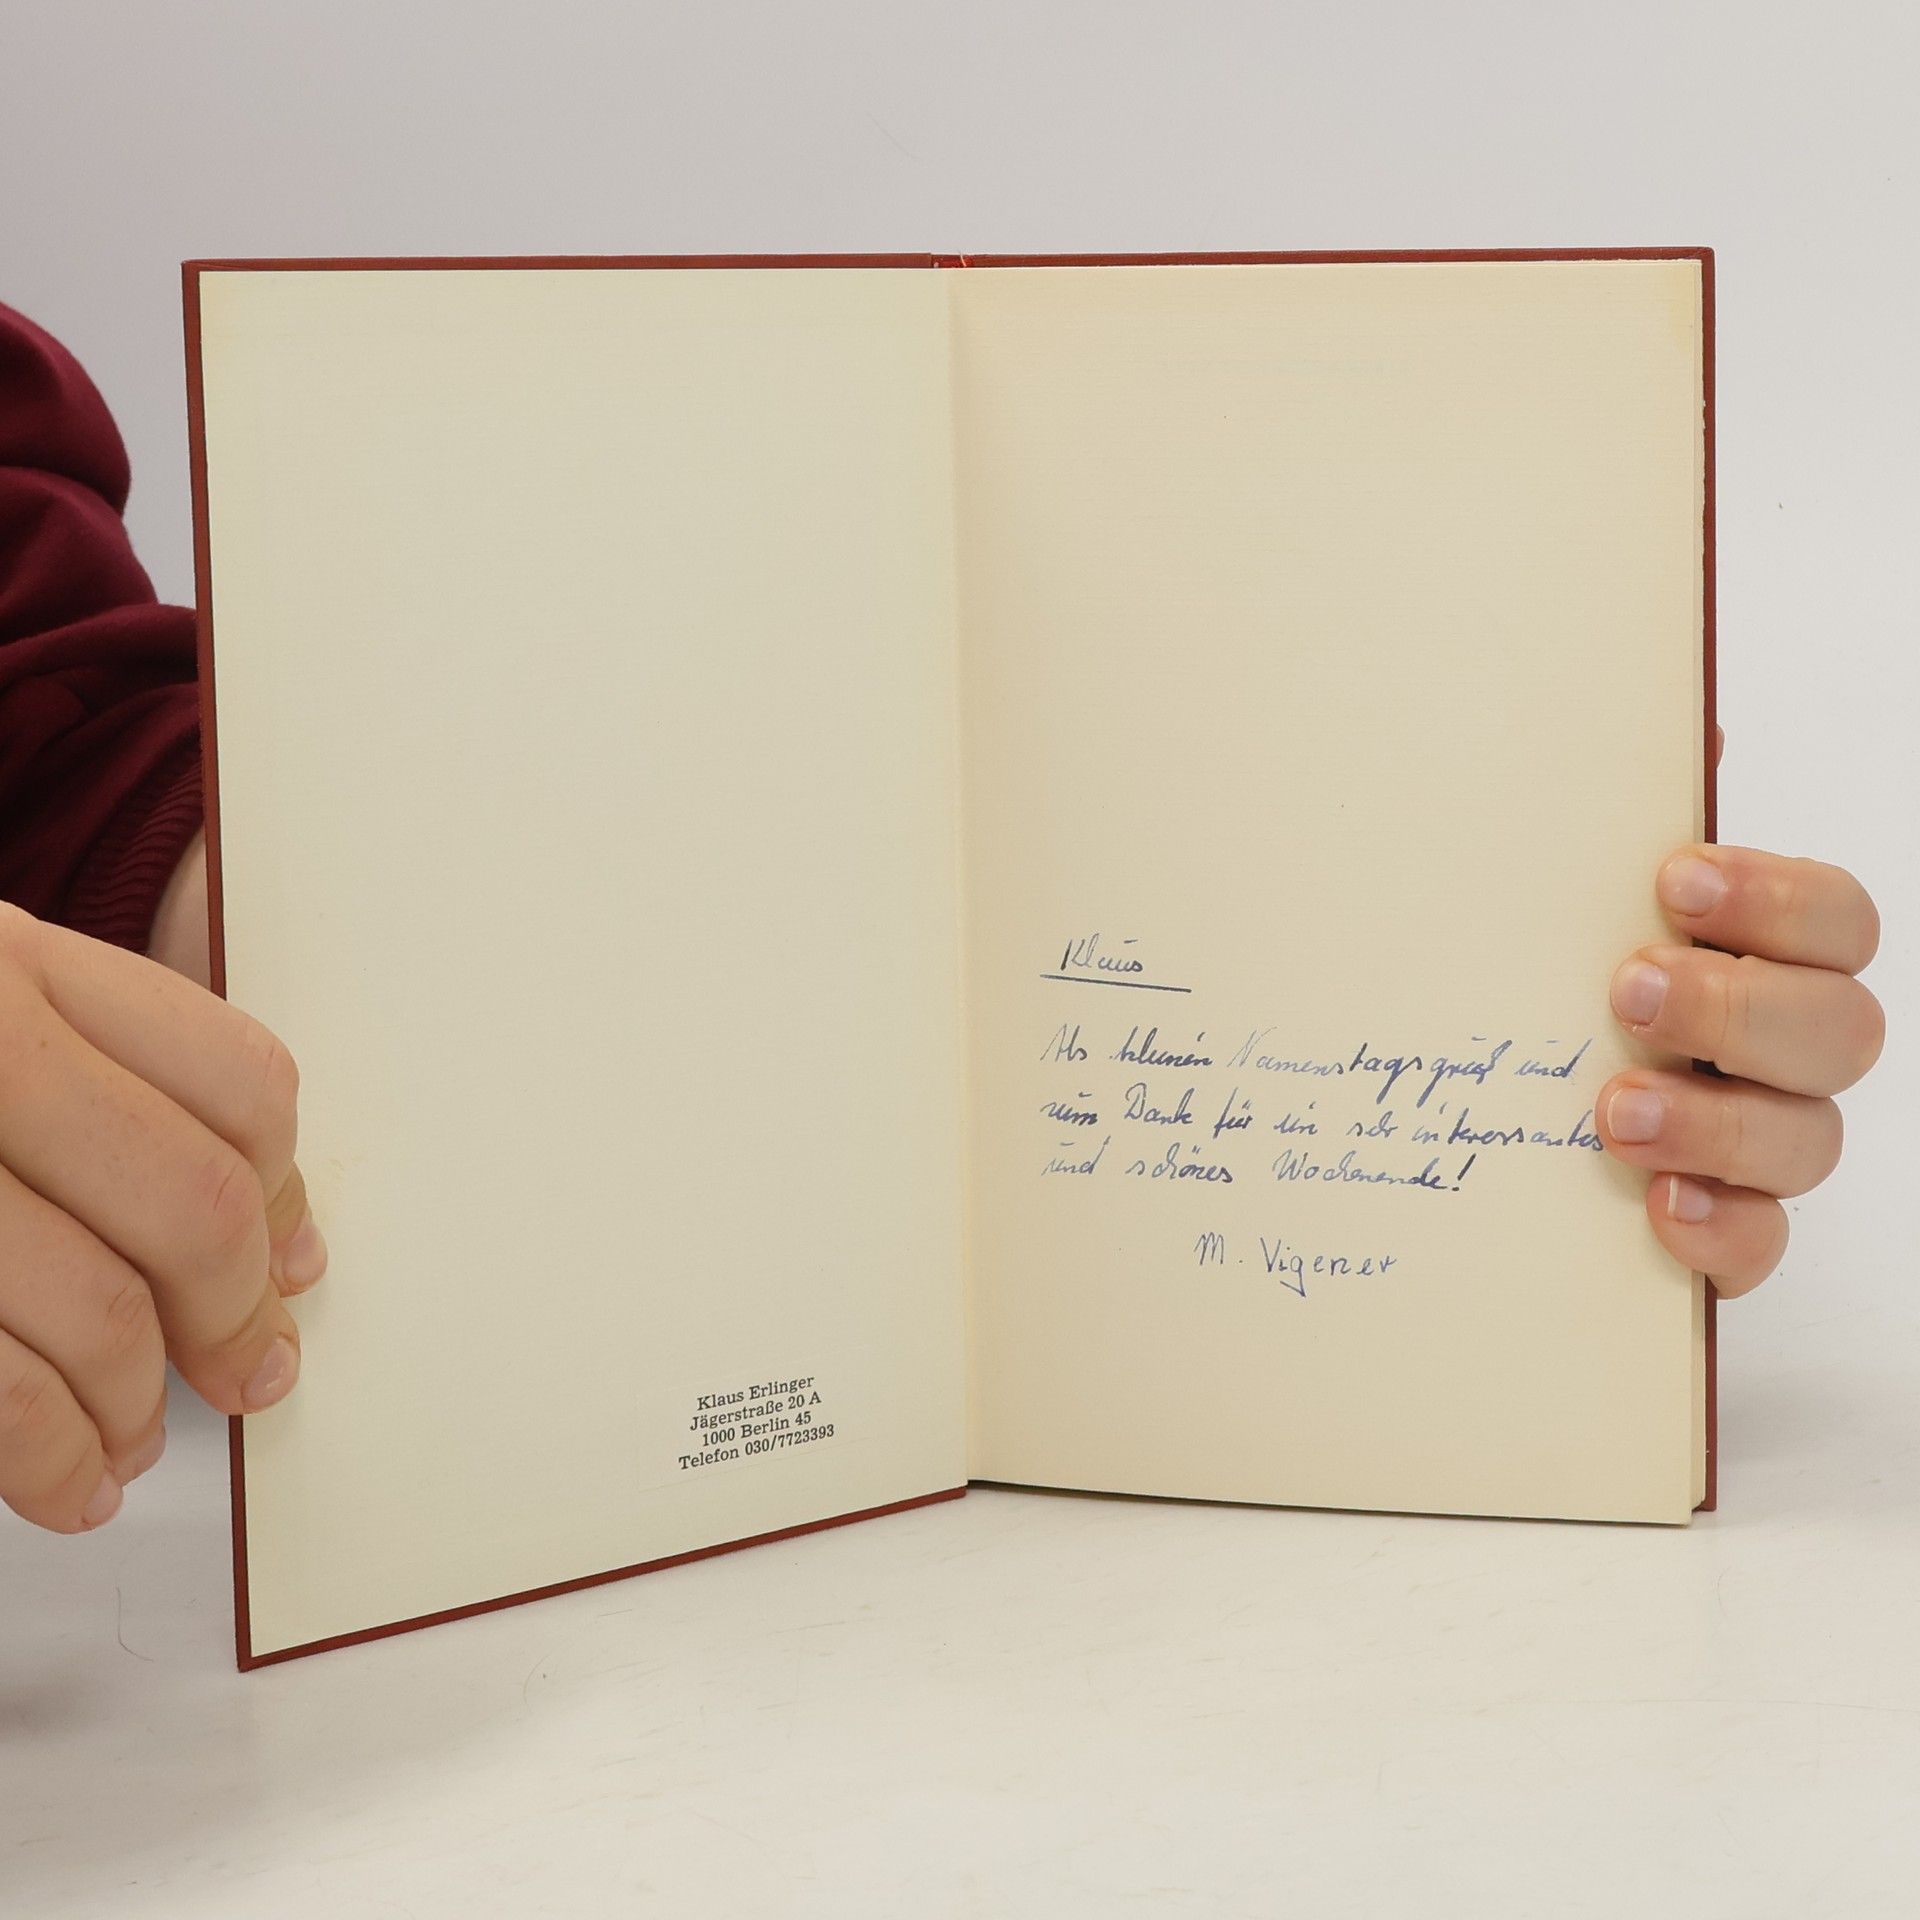 Klaus Erlinger
Jägerstraße 20 A
1000 Berlin 45
Telefon 030/7723393
Klaus
Als kleinen Namenstagsgruß und
zum Dank für ein sehr interessantes
und schönes Wochenende!
M. Vigener